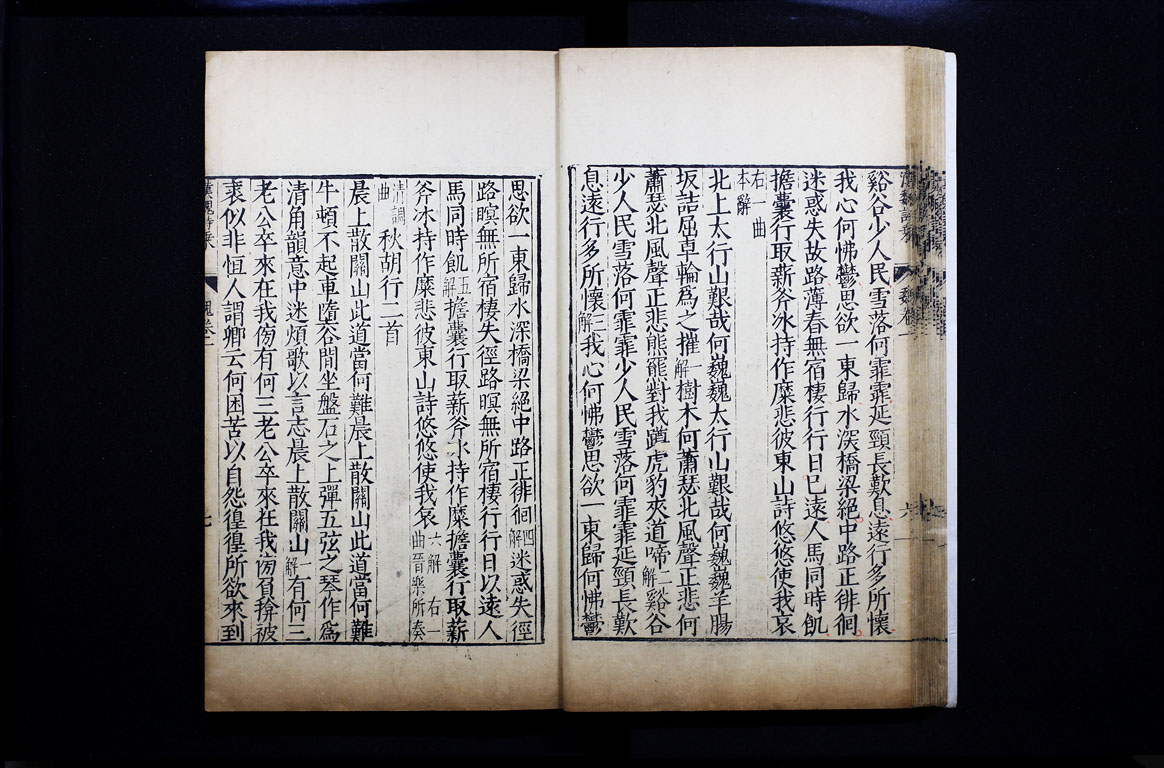 谿谷少人民雪落何霏霏延頸長歎息遠行多所懷
我心何怫鬱思欲一東歸水深橋梁絕中路正徘徊
迷惑失故路薄春無宿棲行行日已遠人馬同時飢
擔囊行取薪斧冰持作糜悲彼東山詩悠悠使我哀
右一曲
本辭
北上太行山艱哉何巍巍太行山艱哉何巍巍羊腸
坂詰屈車輪爲之摧一解樹木何蕭瑟北風聲正悲何
蕭瑟北風聲正悲熊羆對我蹲虎豹夾道啼二解谿谷
少人民雪落何霏霏少人民雪落何霏霏延頸長歎
息遠行多所懷三解我心何怫鬱思欲一東歸何怫鬱
思欲一東歸水深橋梁絕中路正徘徊四解迷惑失徑
路暝無所宿棲失徑路暝無所宿棲行行日以遠人
馬同時飢五解擔囊行取薪斧冰持作糜擔囊行取薪
斧冰持作糜悲彼東山詩悠悠使我哀六解 右一
曲晉樂所奏
清調
曲
秋胡行二首
晨上散關山此道當何難晨上散關山此道當何難
牛頓不起車墮谷間坐盤石之上彈五弦之琴作爲
清角韻意中迷煩歌以言志晨上散關山一解有何三
老公卒來在我傍有何三老公卒來在我傍負揜被
裘似非恒人謂卿云何困苦以自怨徨徨所欲來到
漢魏詩乘
魏卷一
七